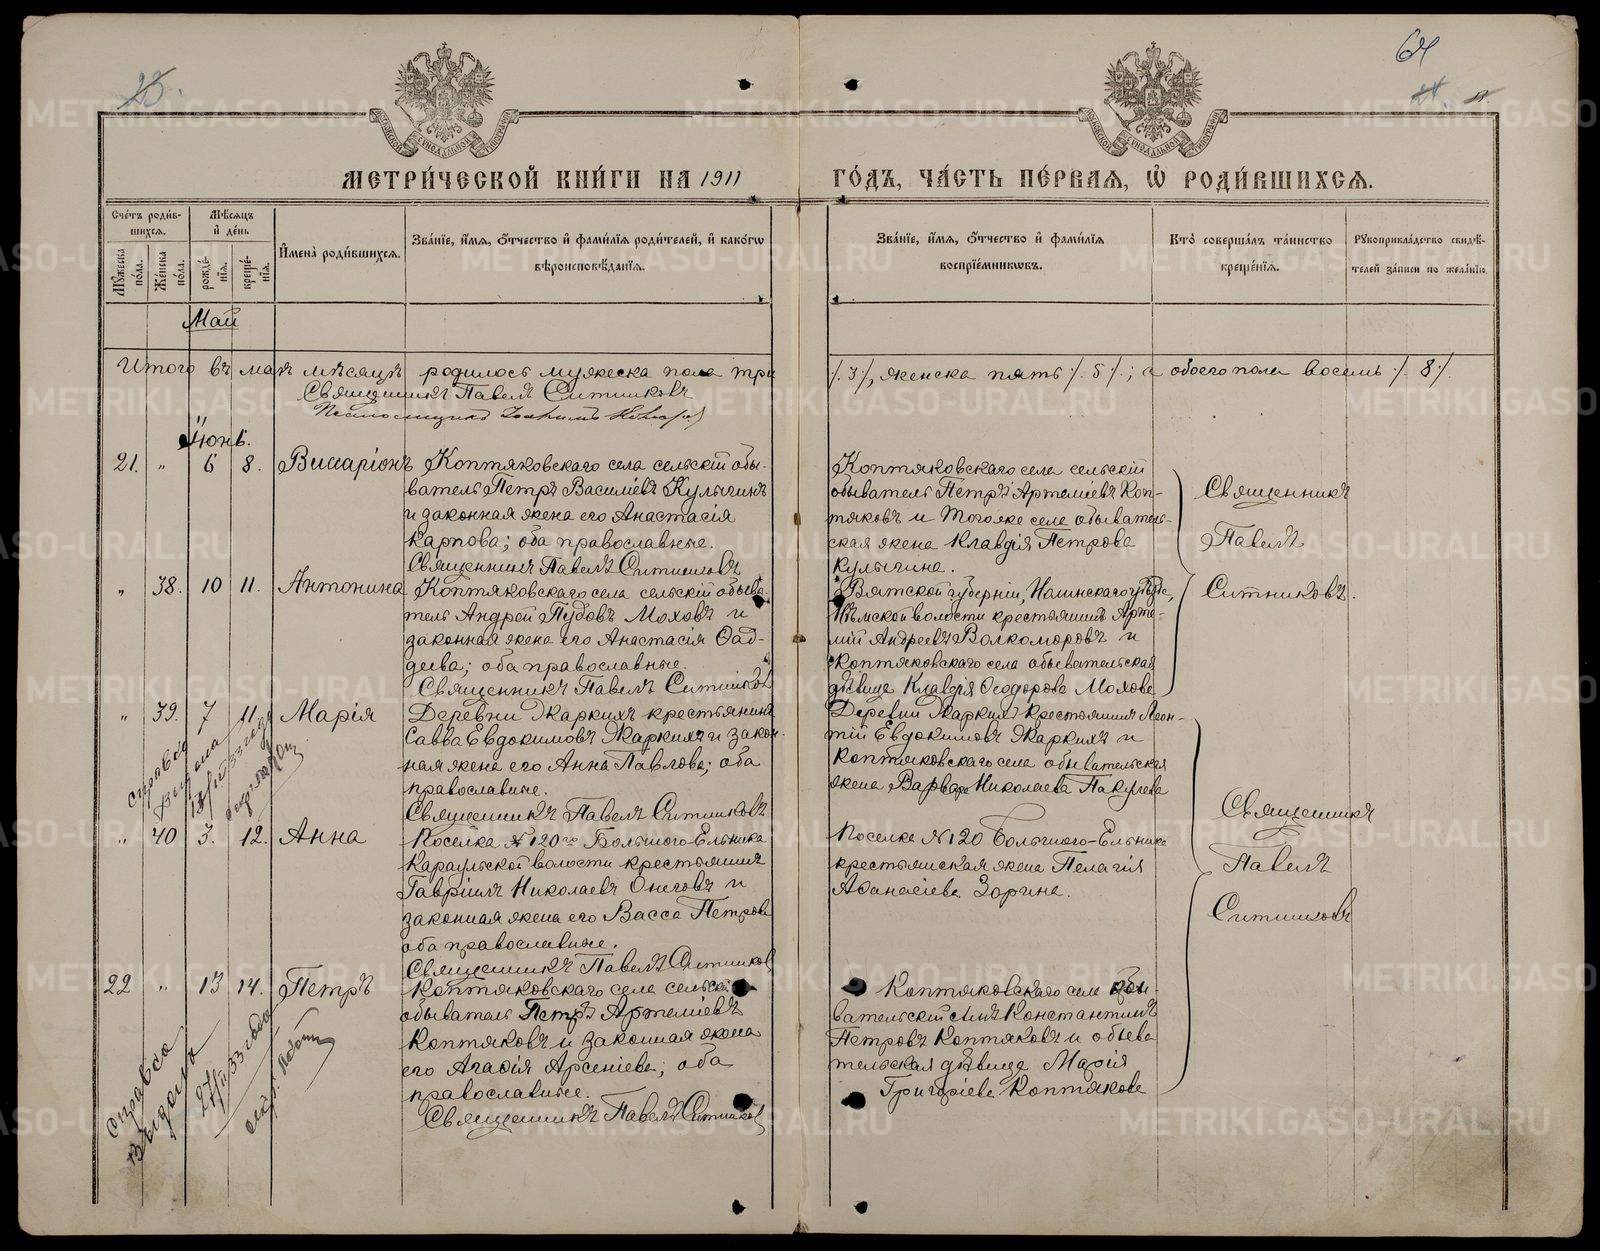 64
23.
МЕТРИ́ЧЕСКОЙ КНИ́ГИ НА 1911
ГО́ДЪ, ЧА́СТЬ ПЕ́РВАЯ, Ѿ РОДИ́ВШИХСЯ.
Сче́тъ роди́вшихся.
Мѣ́сяцъ и҆ де́нь
Мꙋ́жеска по́ла.
Же́нска по́ла.
рожде́нїѧ.
креще́нїѧ.
И҆мена̀ роди́вшихся.
Зва́нїе, и҆́мѧ, ѻ҆́тчество и҆ фамѝлїѧ роди́телей, и҆ како́гѡ
вѣроисповѣ́данїѧ.
Зва́нїе, и҆́мѧ, ѻ҆́тчество и҆ фамѝлїѧ
воспрїе́мникѡвъ.
Кто̀ соверша́лъ та́инство
креще́нїѧ.
Рꙋкоприкла́дство свидѣ́телей за́писи по жела́нїю.
Май
Итого въ маѣ мѣсяцѣ родилось мужеска пола три
./. 3 ./., женска пять ./. 5 ./.; а обоего пола восемь ./. 8 ./.
Священникъ Павелъ Ситниковъ
Псаломщикъ
Іюнь.
21. " 6 8. Виссаріонъ
Коптяковскаго села сельскій обы-
ватель Петръ Василіевъ Кулычинъ
и законная жена его Анастасія
Карпова; оба православные.
Священникъ Павелъ Ситниковъ
Коптяковскаго села сельскій
обыватель Петръ Артеміевъ Коп-
тяковъ и тогоже села обыватель-
ская жена Клавдія Петрова
Кулычина.
Священникъ
Павелъ
Ситниковъ.
" 38. 10 11. Антонина
Коптяковскаго села сельскій обыва-
тель Андрей Пудовъ Моховъ и
законная жена его Анастасія Ѳад-
деева; оба православные.
Священникъ Павелъ Ситниковъ
Вятской губерніи, Нолинского уѣзда,
Нѣмской волости крестьянинъ Арте-
мій Андреевъ Волкоморовъ и
Коптяковскаго села обывательская
дѣвица Клавдія Ѳеодорова Мохова
" 39. 7 11. Марія
Деревни Жаркихъ крестьянинъ
Савва Евдокимовъ Жаркихъ и закон-
ная жена его Анна Павлова; оба
православные.
Священникъ Павелъ Ситниковъ
Деревни Жаркихъ крестьянинъ Леон-
тій Евдокимовъ Жаркихъ и
Коптяковскаго села обывательская
жена Варвара Николаева Пакулева
Священникъ
Павелъ
Ситниковъ
справка
выдана
33 года
" 40 3. 12. Анна
Поселка № 120го Большого-Ельника
Караульской волости крестьянинъ
Гавріилъ Николаевъ Онеговъ и
законная жена его Васса Петрова
оба православные.
Священникъ Павелъ Ситниковъ
Поселка № 120 Большого-Ельника
крестьянская жена Пелагія
Аѳанасіева Зорина.
22 " 13 14. Петръ
Коптяковскаго села сельскій
обыватель Петръ Артеміевъ
Коптяковъ и законная жена
его Агаѳія Арсеніева; оба
православные.
Священникъ Павелъ Ситниковъ
Коптяковскаго села обы-
вательскій сынъ Константинъ
Петровъ Коптяковъ и обыва
тельская дѣвица Марія
Григоріева Коптякова
Справка
выдана
27/II 33 года